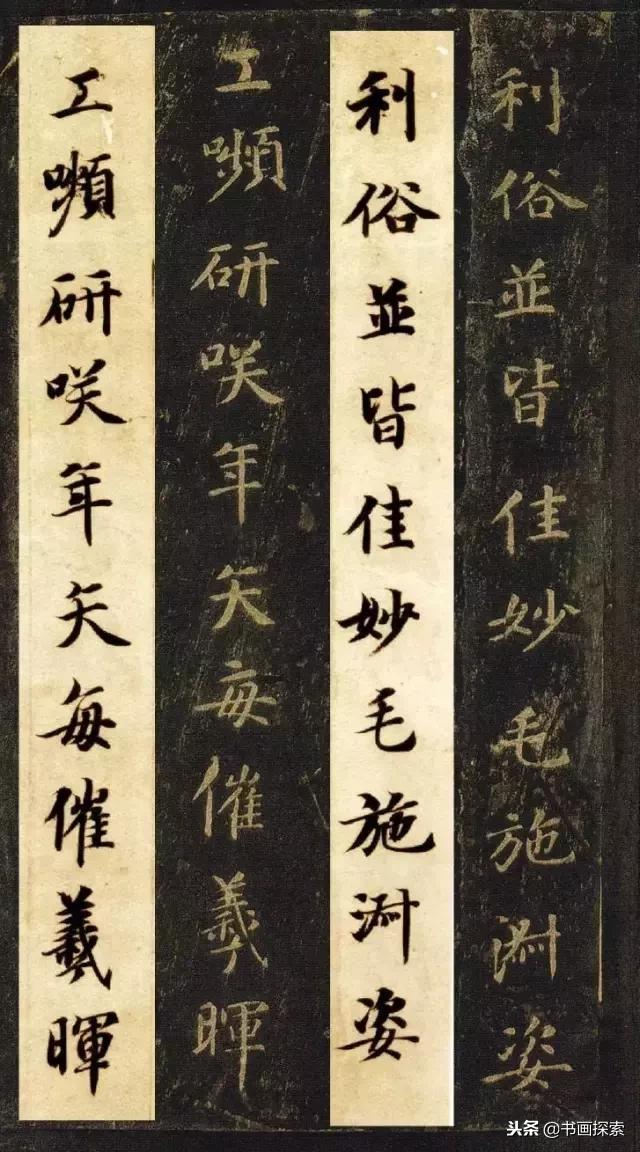 利俗並皆佳妙毛施淑姿
利俗並皆佳妙毛施淑姿
工嚬研咲年矢每催羲暉
工嚬研咲年矢每催羲暉
头条 @书画探索